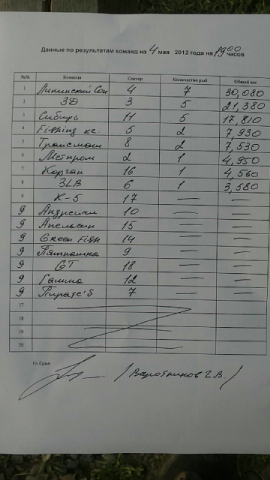 Данные по результатам команд на 4 мая 2012 года на 19 00 часов
№/№ Команда Сектор Количество рыб Общий вес
1 4 7 30,080
2 3D 3 5 21,380
3 Сибирь 11 5 17,810
4 Fishing кс. 5 2 7,930
5 Трансмаш 8 2 7,530
6 2 1 4,950
7 Карган 16 1 4,560
8 3LB 6 1 3,580
9 К-5 17 — —
9 10 — —
9 Апельсин 15 — —
9 Green Fish 14 — —
9 9 — —
9 GT 18 — —
9 Гамма 12 — —
9 Пират's 7 — —
17
18
19
20
Гл. Судья
(Воротников В.)